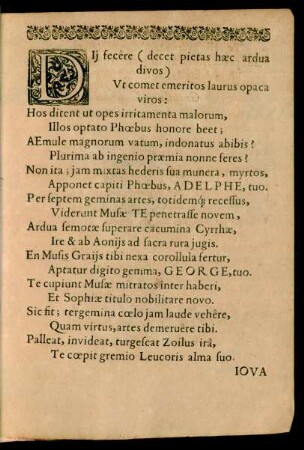 DIj fecêre (decet pietas hæc ardua
divos)
Vt comet emeritos laurus opaca
viros:
Hos ditent ut opes irritamenta malorum,
Illos optato Phœbus honore beet;
AEmule magnorum vatum, indonatus abibis?
Plurima ab ingenio præmia nonne feres?
Non ita; jam mixtas hederis sua munera, myrtos,
Apponet capiti Phœbus, ADELPHE, tuo.
Per septem geminas artes, totidemq́; recessus,
Viderunt Musæ TE penetrasse novem,
Ardua semotæ superare cacumina Cyrrhæ,
Ire & ab Aonijs ad sacra rura jugis.
En Musis Graijs tibi nexa corollula fertur,
Aptatur digito gemma, GEORGE, tuo.
Te cupiunt Musæ mitratos inter haberi,
Et Sophiæ titulo nobilitare novo.
Sic fit; tergemina cœlo jam laude vehêre,
Quam virtus, artes demeruêre tibi.
Palleat, invideat, turgescat Zoilus irâ,
Te cœpit gremio Leucoris alma suo.
IOVA